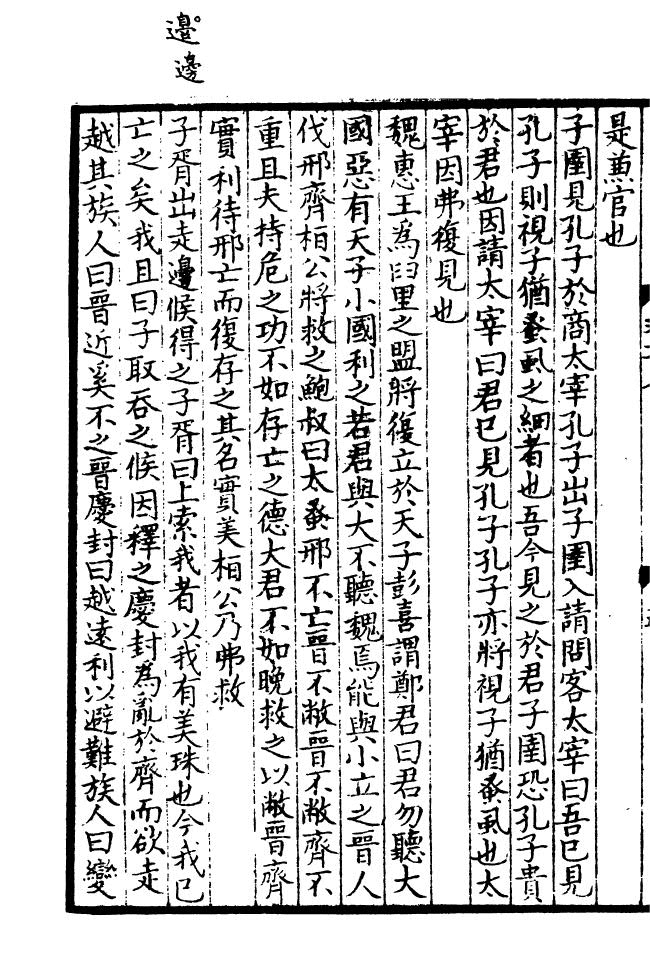 邉邊
是兼官也
子圉見孔子於商太宰孔子出子圉入請問客太宰曰吾已見
孔子則視子猶蚤虱之細者也吾今見之於君子圉恐孔子貴
於君也因請太宰曰君已見孔子孔子亦將視子猶蚤虱也太
宰因弗復見也
魏惠王為臼里之盟將復立於天子彭喜謂鄭君曰君勿聽大
國惡有天子小國利之若君與大不聽魏焉能與小立之晉人
伐邢齊桓公將救之鮑叔曰太蚤邢不亡晉不敝晉不敝齊不
重且夫持危之功不如存亡之德大君不如晚救之以敝晉齊
實利待邢亡而復存之其名實美桓公乃弗救
子胥出走邊候得之子胥曰上索我者以我有美珠也今我已
亡之矣我且曰子取吞之候因釋之慶封為亂於齊而欲走
越其族人曰晉近奚不之晉慶封曰越遠利以避難族人曰變